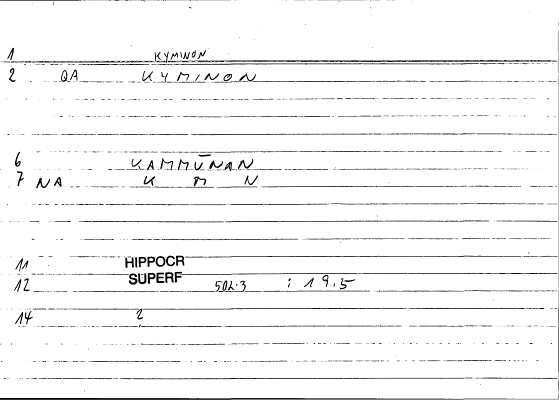 1 KYMINON
2 QA KYMINON
6 KAMMŪNAN
7 NA K M N
11 HIPPOCR
12 SUPERF 502.3 : 19.5
14 2